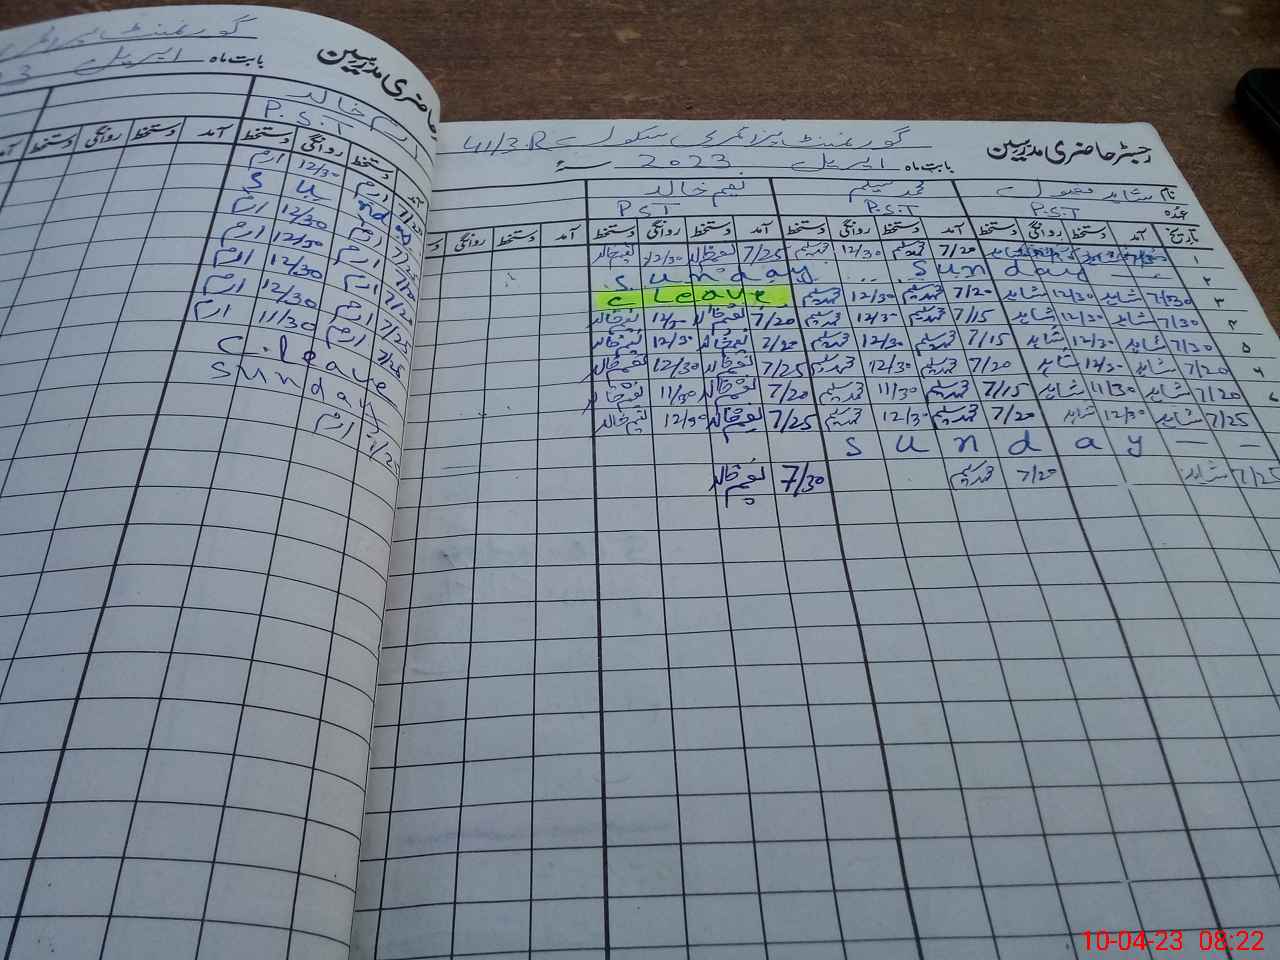 رجسٹر حاضری مدرسین
گورنمنٹ پرائمری سکول 41/3.R
بابت ماہ اپریل 2023 سنہ
نام شاہد محمد سلیم نعیم خالد
عہدہ P.S.T P.S.T P.S.T
تاریخ آمد دستخط روانگی دستخط آمد دستخط روانگی دستخط آمد دستخط روانگی دستخط آمد دستخط روانگی
۱ 7/20 محمد سلیم 12/30 محمد سلیم 7/25 نعیم خالد 12/30 نعیم خالد
۲ Sunday Sunday
۳ 7/30 شاہد 12/30 شاہد 7/20 محمد سلیم 12/30 محمد سلیم C Leave
۴ 7/30 شاہد 12/30 شاہد 7/15 محمد سلیم 12/30 محمد سلیم 7/20 نعیم خالد 12/30 نعیم خالد
۵ 7/30 شاہد 12/30 شاہد 7/15 محمد سلیم 12/30 محمد سلیم 7/20 نعیم خالد 12/30 نعیم خالد
۶ 7/20 شاہد 12/30 شاہد 7/20 محمد سلیم 12/30 محمد سلیم 7/25 نعیم خالد 12/30 نعیم خالد
7/20 شاہد 11/30 شاہد 7/15 محمد سلیم 11/30 محمد سلیم 7/20 نعیم خالد 11/30 نعیم خالد
7/25 شاہد 12/30 شاہد 7/20 محمد سلیم 12/30 محمد سلیم 7/25 نعیم خالد 12/30 نعیم خالد
Sunday
7/25 شاہد 7/20 محمد سلیم 7/30 نعیم خالد
حاضری مدرسین
گورنمنٹ پرائمری
بابت ماہ اپریل
ارم خالد
P.S.T
آمد دستخط روانگی دستخط آمد دستخط روانگی دستخط
7/20 ارم 12/30 ارم
Sunday
7/25 ارم 12/30 ارم
7/20 ارم 12/30 ارم
7/25 ارم 12/30 ارم
7/25 ارم 11/30 ارم
C.leave
Sunday
7/25 ارم
10-04-23 08:22